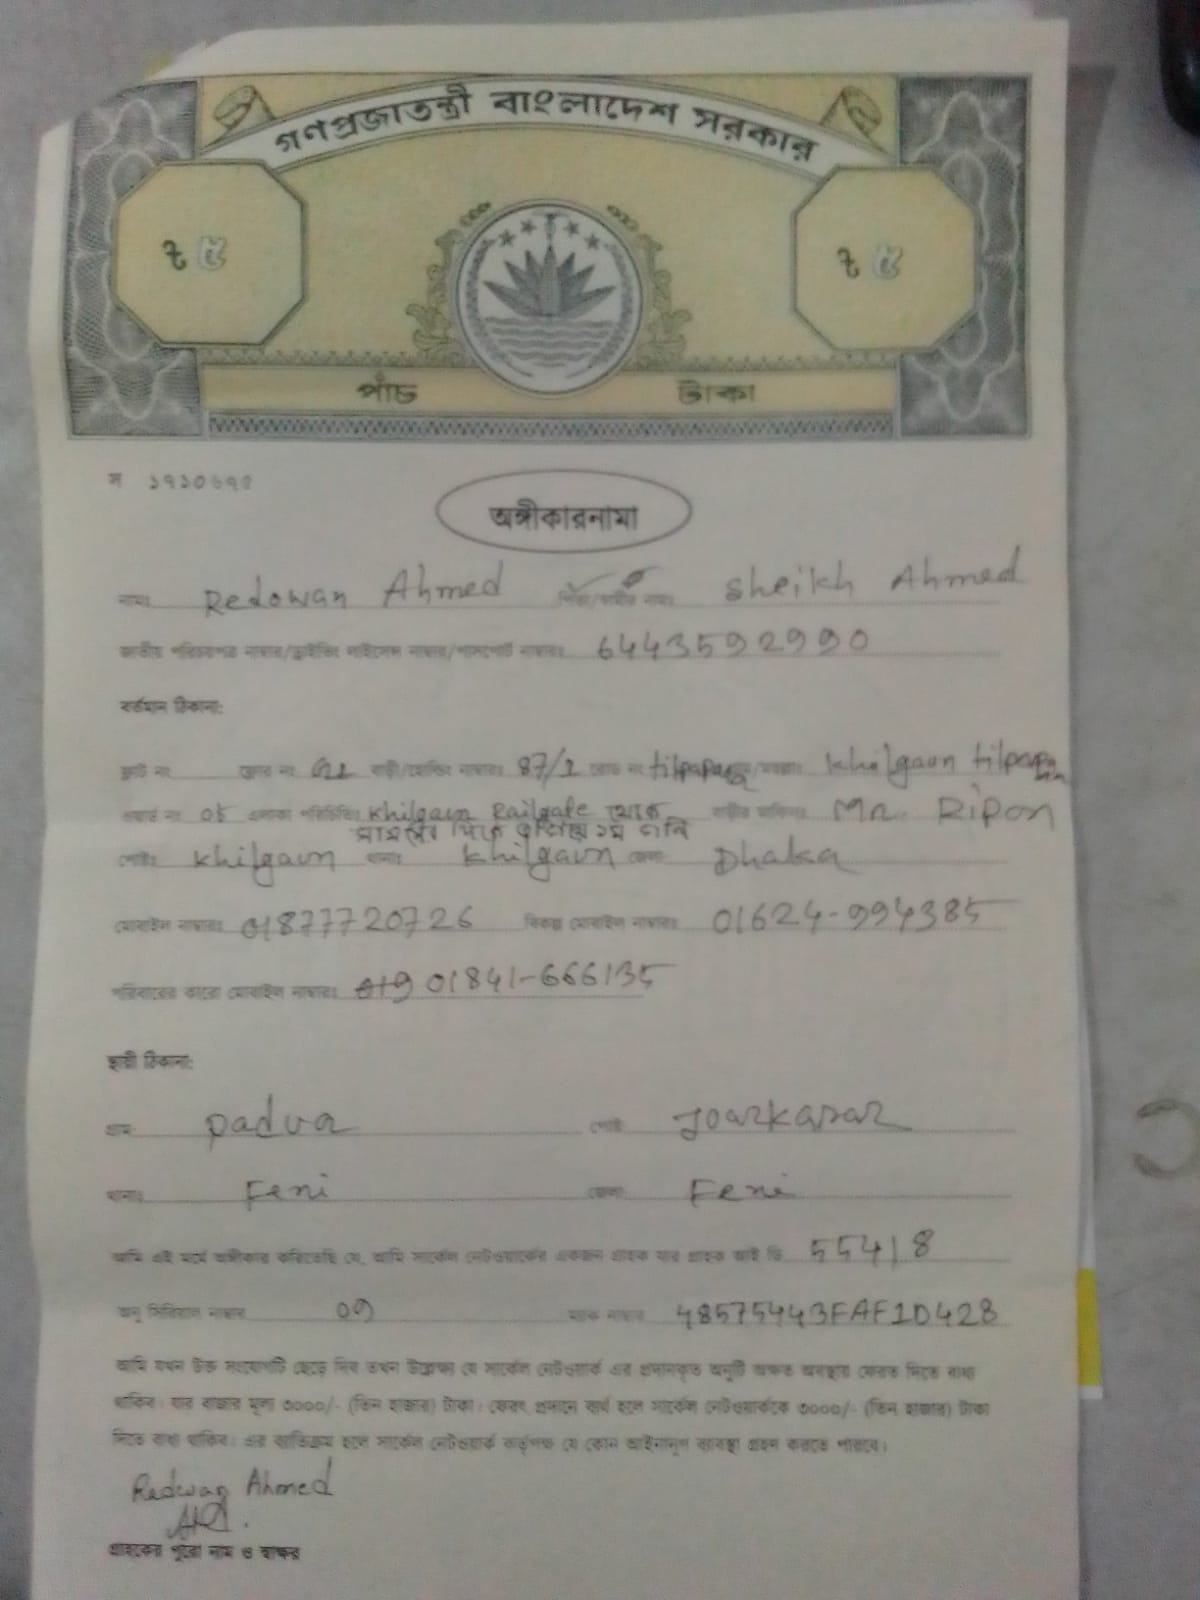 গণপ্রজাতন্ত্রী বাংলাদেশ সরকার
৳ ৫ ৳ ৫
পাঁচ টাকা
স ১৭১০৬৭৫
অঙ্গীকারনামা
নামঃ Redowan Ahmed পিতা/স্বামীর নামঃ Sheikh Ahmed
জাতীয় পরিচয়পত্র নাম্বার/ড্রাইভিং লাইসেন্স নাম্বার/পাসপোর্ট নাম্বারঃ 6443592990
বর্তমান ঠিকানা:
ফ্ল্যাট নং ফ্লোর নং বাড়ী/হোল্ডিং নাম্বারঃ 87/1 রোড নং tilpapara khilgaun tilpapara
ওয়ার্ড নং 05 এলাকা পরিচিতিঃ Khilgaun Railgate থেকে বাড়ীর মালিকঃ Mr. Ripon
১ম গলি
পোষ্টঃ Khilgaun থানাঃ khilgaun জেলাঃ Dhaka
মোবাইল নাম্বারঃ 01877720726 বিকল্প মোবাইল নাম্বারঃ 01624-994385
পরিবারের কারো মোবাইল নাম্বারঃ 01841-666135
স্থায়ী ঠিকানা:
গ্রামঃ Padua পোষ্টঃ Joarkasar
থানাঃ Feni জেলাঃ Feni
আমি এই মর্মে অঙ্গীকার করিতেছি যে, আমি সার্কেল নেটওয়ার্কের একজন গ্রাহক যার গ্রাহক আই ডি 55418
অনু সিরিয়াল নাম্বার 09 ম্যাক নাম্বার 48575443FAF1D428
আমি যখন উক্ত সংযোগটি ছেড়ে দিব তখন উল্লেক্ষ্য যে সার্কেল নেটওয়ার্ক এর প্রদানকৃত অনুটি অক্ষত অবস্থায় ফেরত দিতে বাধ্য
থাকিব। যার বাজার মূল্য ৩০০০/- (তিন হাজার) টাকা। ফেরৎ প্রদানে ব্যর্থ হলে সার্কেল নেটওয়ার্ককে ৩০০০/- (তিন হাজার) টাকা
দিতে বাধ্য থাকিব। এর ব্যতিক্রম হলে সার্কেল নেটওয়ার্ক কর্তৃপক্ষ যে কোন আইনানুগ ব্যবস্থা গ্রহন করতে পারবে।
Redwan Ahmed
গ্রাহকের পুরো নাম ও স্বাক্ষর